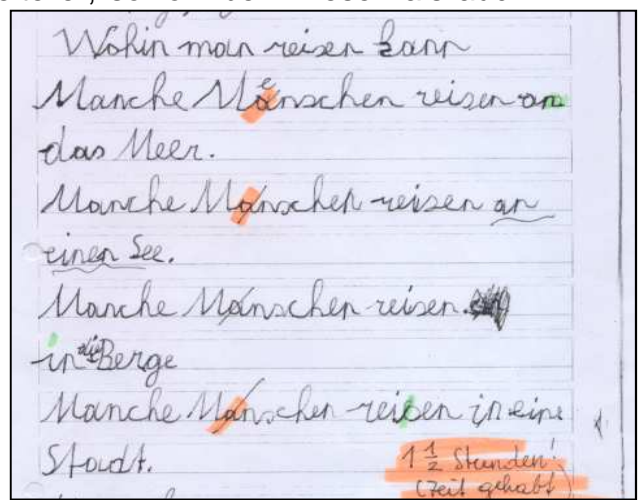 Wohin man reisen kann
Manche Mänschen reisen an
das Meer.
Manche Mänschen reisen an
einen See.
Manche Mänschen reisen
in die Berge
Manche Mänschen reisen in eine
Stadt.
1 1/2 Stunden!
(Zeit gehabt